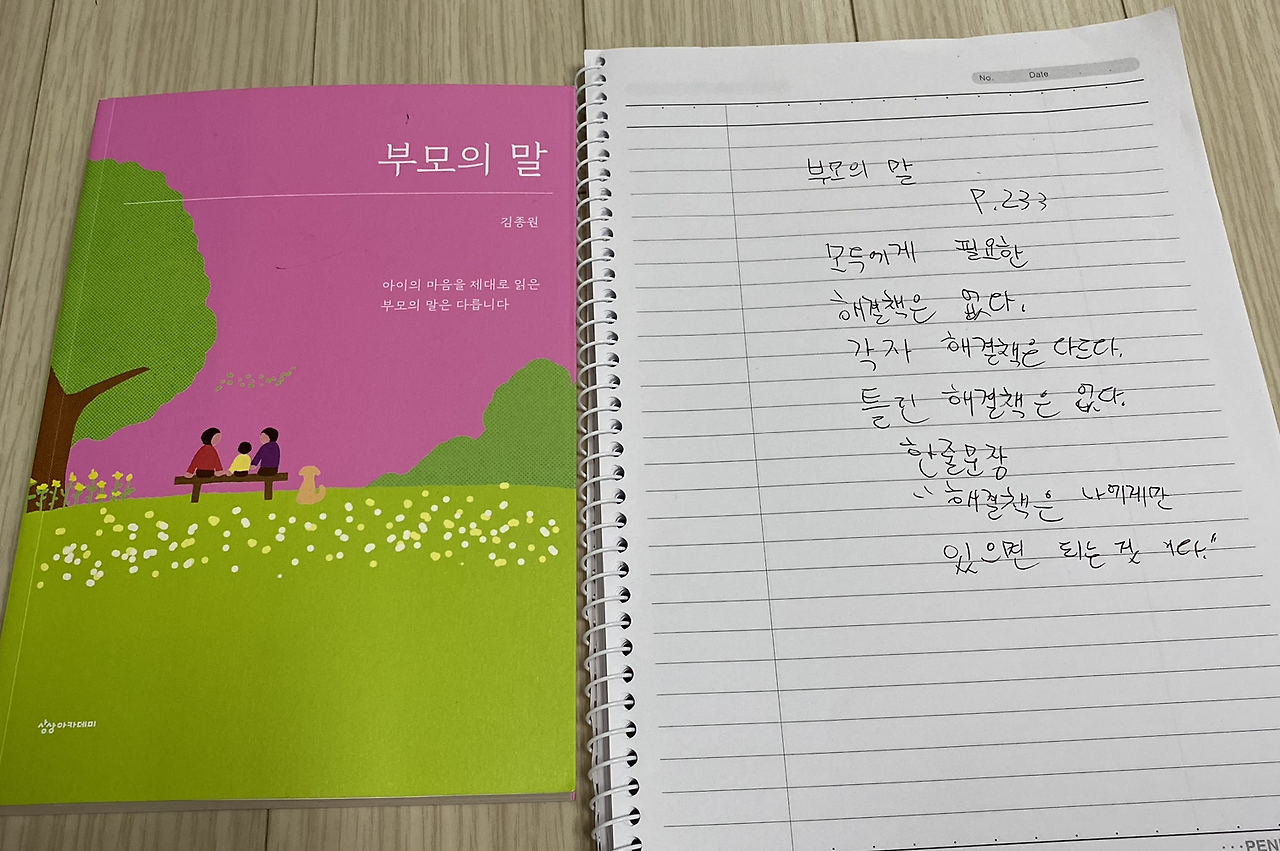 부모의 말
김종원
아이의 마음을 제대로 읽은
부모의 말은 다릅니다
상상아카데미
No. Date
부모의 말
P.233
모두에게 필요한
해결책은 없다.
각자 해결책은 다르다.
틀린 해결책은 없다.
한줄문장
"해결책은 나에게만
있으면 되는 것 이다."
···PEN